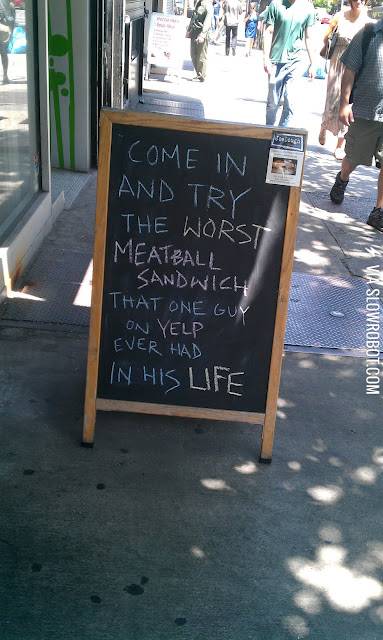 COME IN
AND TRY
THE WORST
MEATBALL
SANDWICH
THAT ONE GUY
ON YELP
EVER HAD
IN HIS LIFE
VIA SLOWROBOT.COM